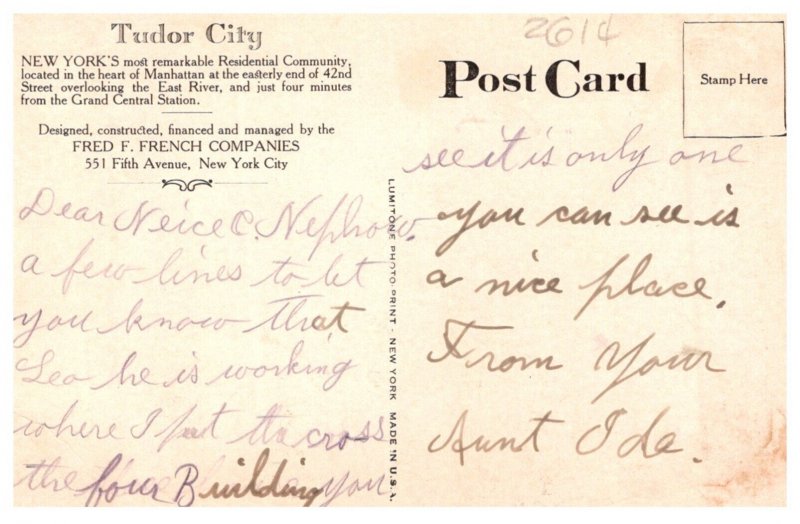 Tudor City
NEW YORK'S most remarkable Residential Community,
located in the heart of Manhattan at the easterly end of 42nd
Street overlooking the East River, and just four minutes
from the Grand Central Station.
Designed, constructed, financed and managed by the
FRED F. FRENCH COMPANIES
551 Fifth Avenue, New York City
Dear Neice & Nephow.
a few lines to let
you know that
Leo he is working
where I put the cross
the four Building you
LUMITONE PHOTOPRINT · NEW YORK MADE IN U.S.A.
2614
Post Card
Stamp Here
see it is only one
you can see is
a nice place.
From Your
Aunt Ida.